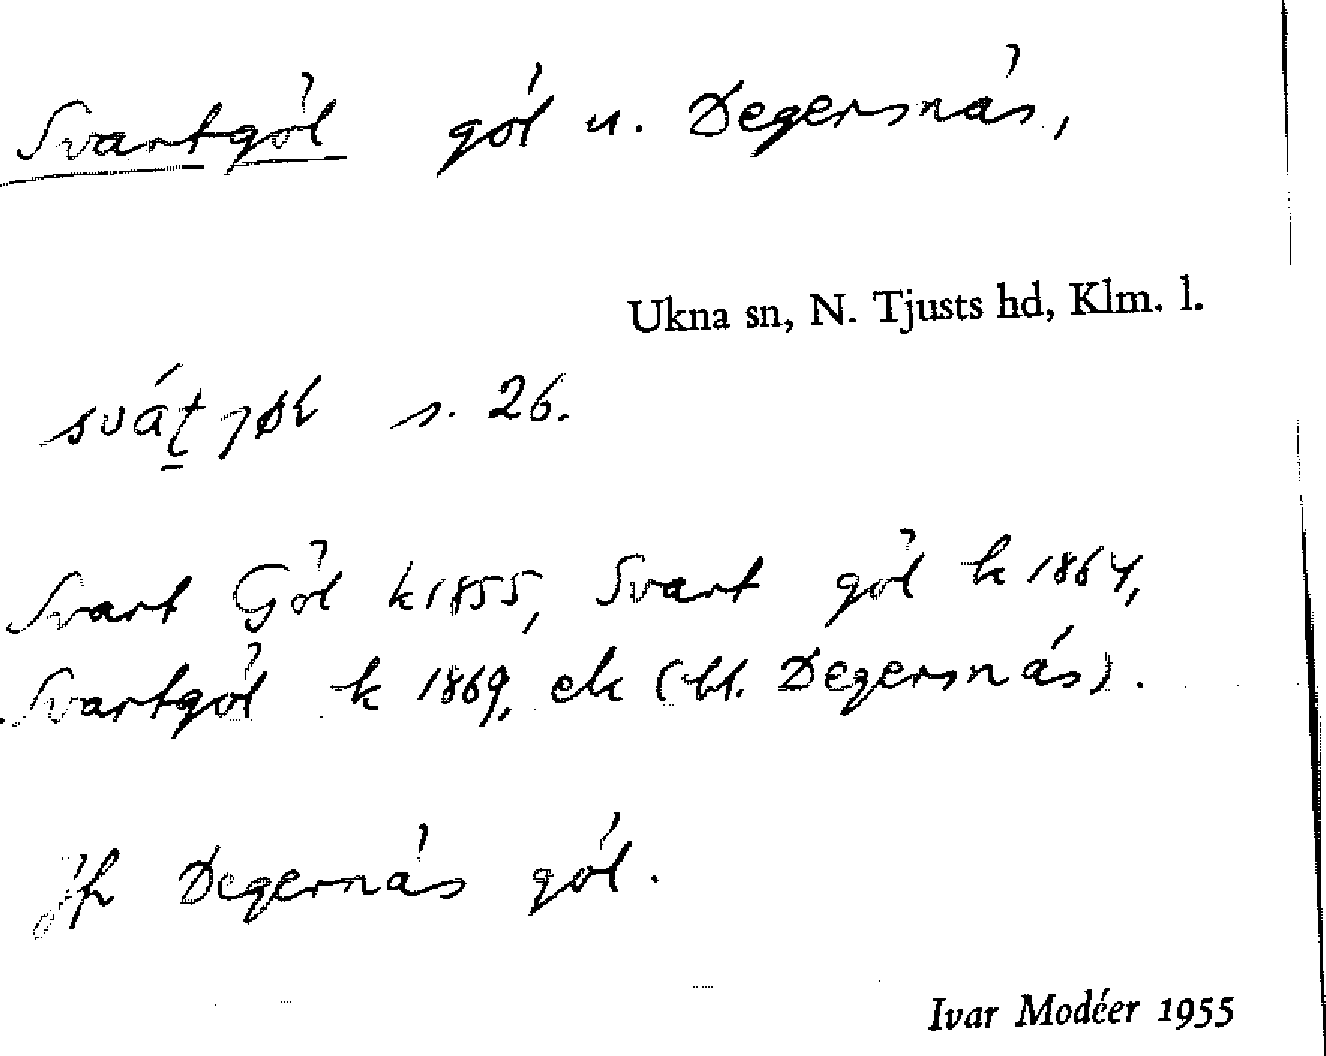 Svartgöl göl u. Degersnäs,
Ukna sn, N. Tjusts hd, Klm. l.
s. 26.
Svart Göl k 1855, Svart göl k 1864,
Svartgöl k 1869, ek (bl. Degersnäs).
jfr Degernäs göl.
Ivar Modéer 1955